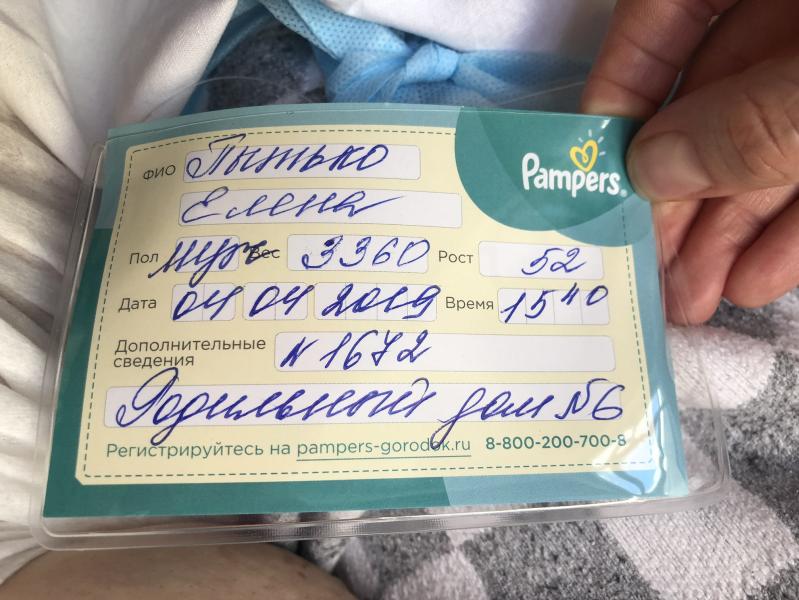 Pampers®
ФИО Пытько
Елена
Пол муж Вес 3360 Рост 52
Дата 04 04 2019 Время 15 40
Дополнительные
сведения N 1672
Родильный дом N6
Регистрируйтесь на pampers-gorodok.ru 8-800-200-700-8